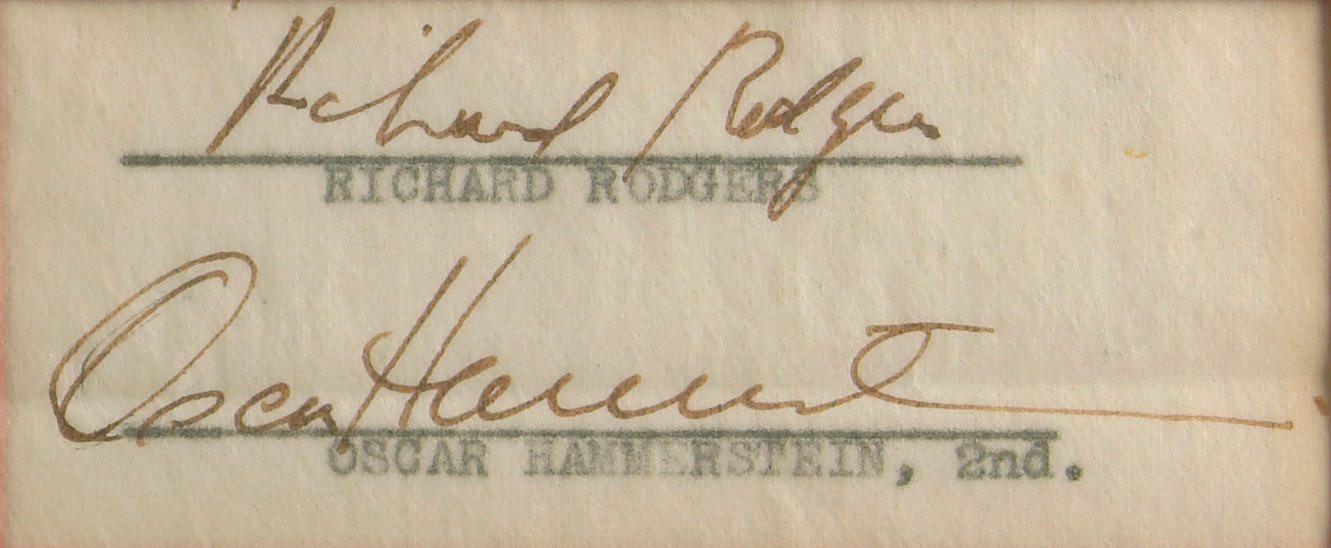 Richard Rodgers
RICHARD RODGERS
Oscar Hammerstein
OSCAR HAMMERSTEIN, 2nd.